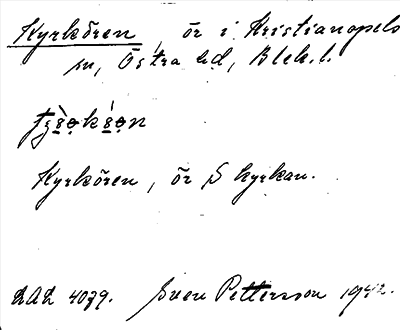 Kyrkören, ör i Kristianopels
sn, Östra hd, Blek. l.
Kyrkören, ör S kyrkan.
LAL 4079. Sven Petterson 1942.